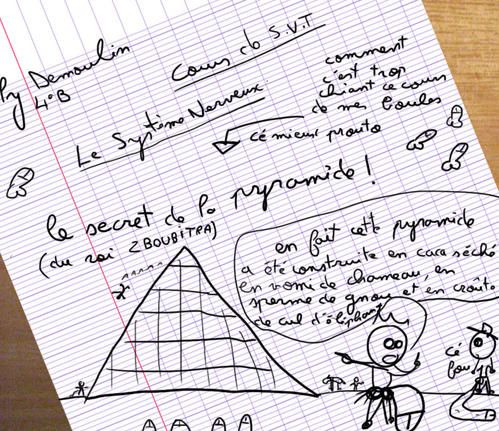 Py Demoulin
4°B
Cours de S.V.T
Le Système Nerveux
comment
c'est trop
chiant ce cours
de mes boules
cé mieux prouto
le secret de la pyramide !
(du roi ZBOUBITRA)
en fait cette pyramide
a été construite en caca séché
en vomi de chameau, en
sperme de gnou et en croûte
de cul d'éléphant
cé
fou